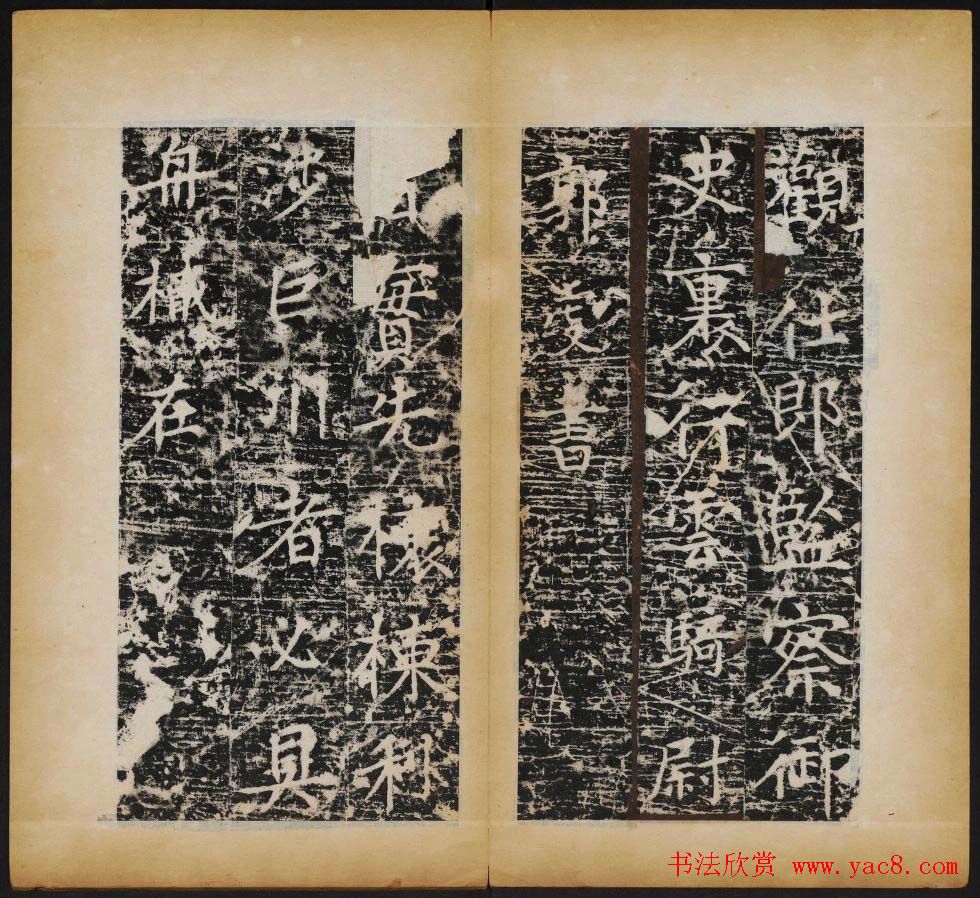 觀仕郎監察御
史裏行雲騎尉
郭書
實先榱棟利
涉巨川者必具
舟檝在
书法欣赏 www.yac8.com